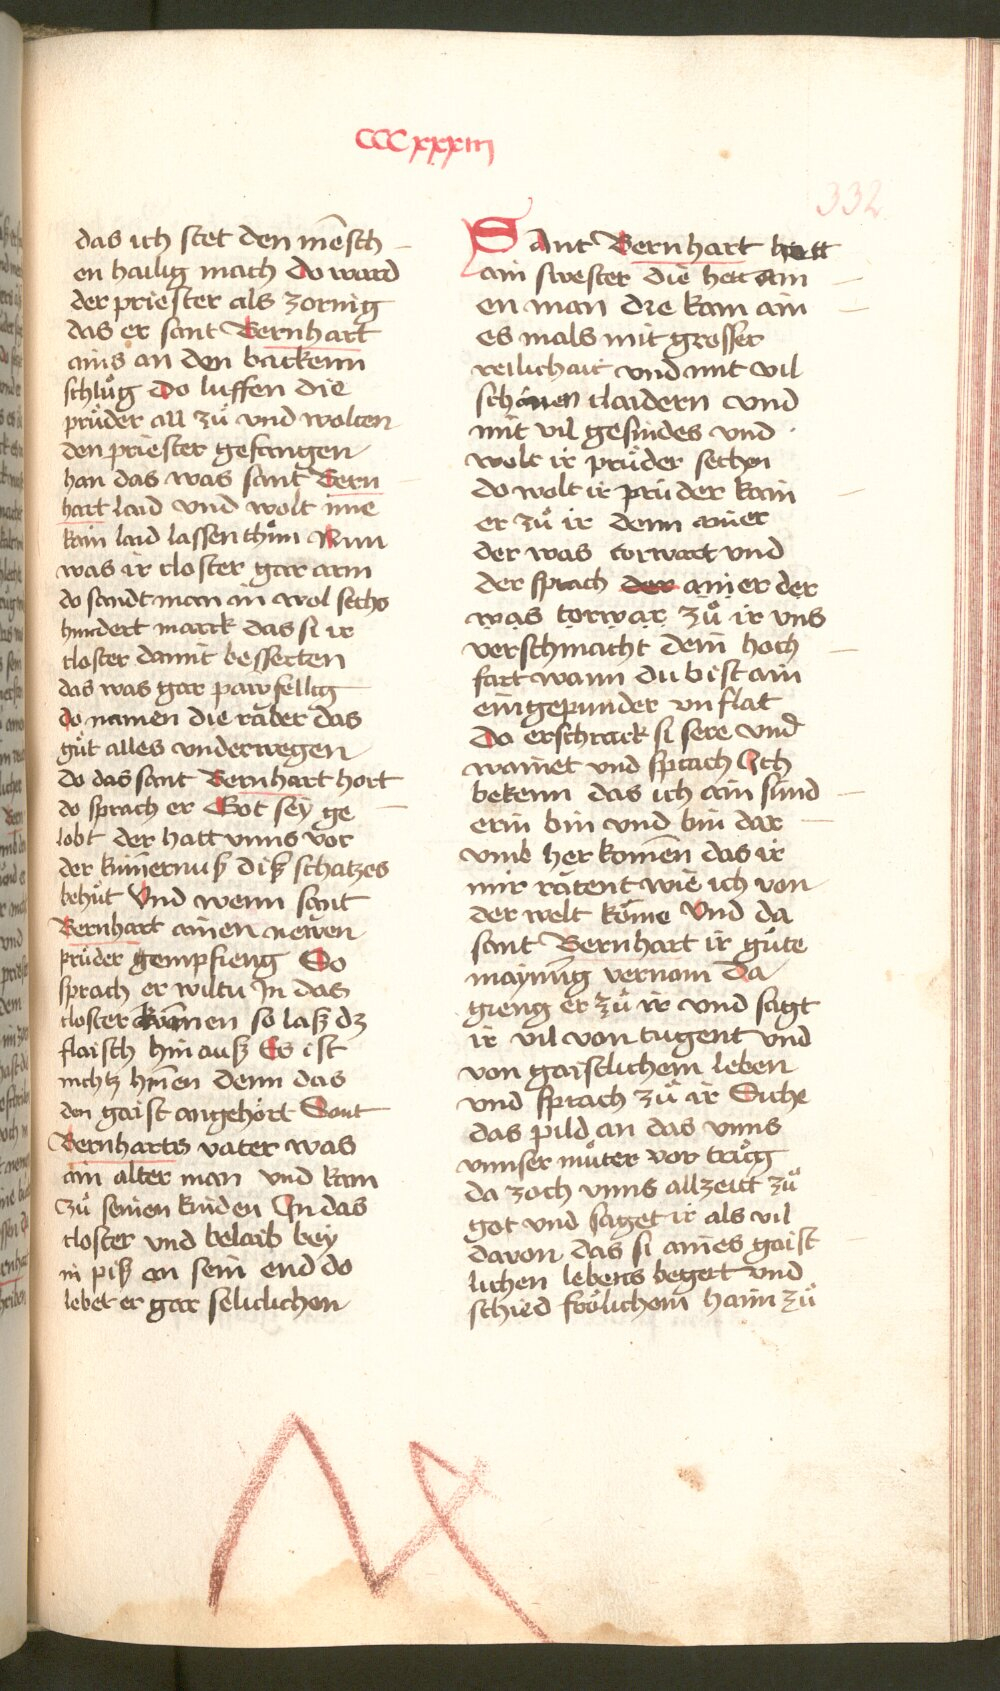 CCCxxxiij
332
das ich stet den mēsch
en hailig mach do ward
der priester als zornig
das er sant Bernhart
ains an den backenn
schlůg do luffen die
průder all zů vnd wolten
den priester gefangen
han das was sant Bern
hart laid vnd wolt ime
kain laid lassen thůn Nun
was ir closter gar arm
do sandt man in wol sechs
hundert marck das si ir
closter damit besserten
das was gar pawfellig
do namen die rauber das
gůt alles vnderwegen
do das sant Bernhart hort
do sprach er Got sey ge
lobt der hatt vnns vor
der kumernuß diß schatzes
behůt Vnd wenn sant
Bernhart ainen newen
průder gempfieng So
sprach er wiltu In das
closter komen so laß dz
flaisch hin auß Es ist
nichtz hinen denn das
den gaist angehört Sant
Bernharts vater was
ain alter man vnd kam
zů seinen kinden In das
closter vnd belaib bey
in piß an sein end do
lebet er gar seliclichen
Sant Bernhart hett
ain swester die hett ain
en man die kam ain
es mals mit grosser
reilichait vnd mit vil
schönen claidern vnd
mit vil gesindes vnd
wolt ir průder sechen
do wolt ir průder kain
er zů ir denn ainer
der was torwart vnd
der sprach der ainer der
was torwar zů ir vns
verschmacht dein hoch
fart wann du bist ain
eingepunder vnflat
Da erschrack si sere vnd
wainet vnd sprach Ich
bekenn das ich ain sünd
erin bin vnd bin dar
vmb her komen das ir
mir rätent wie ich von
der welt köme Vnd da
sant Bernhart ir gůte
maynūg vernom Da
gieng er zů ir vnd sagt
ir vil von tugent vnd
von gaistlichem leben
vnd sprach zů ir Siche
das pild an das vnns
vnnser můter vor trůg
da zoch vnns allzeitt zů
got vnd saget ir als vil
davon das si aines gaist
lichen lebens begert vnd
schied frölichem haim zů